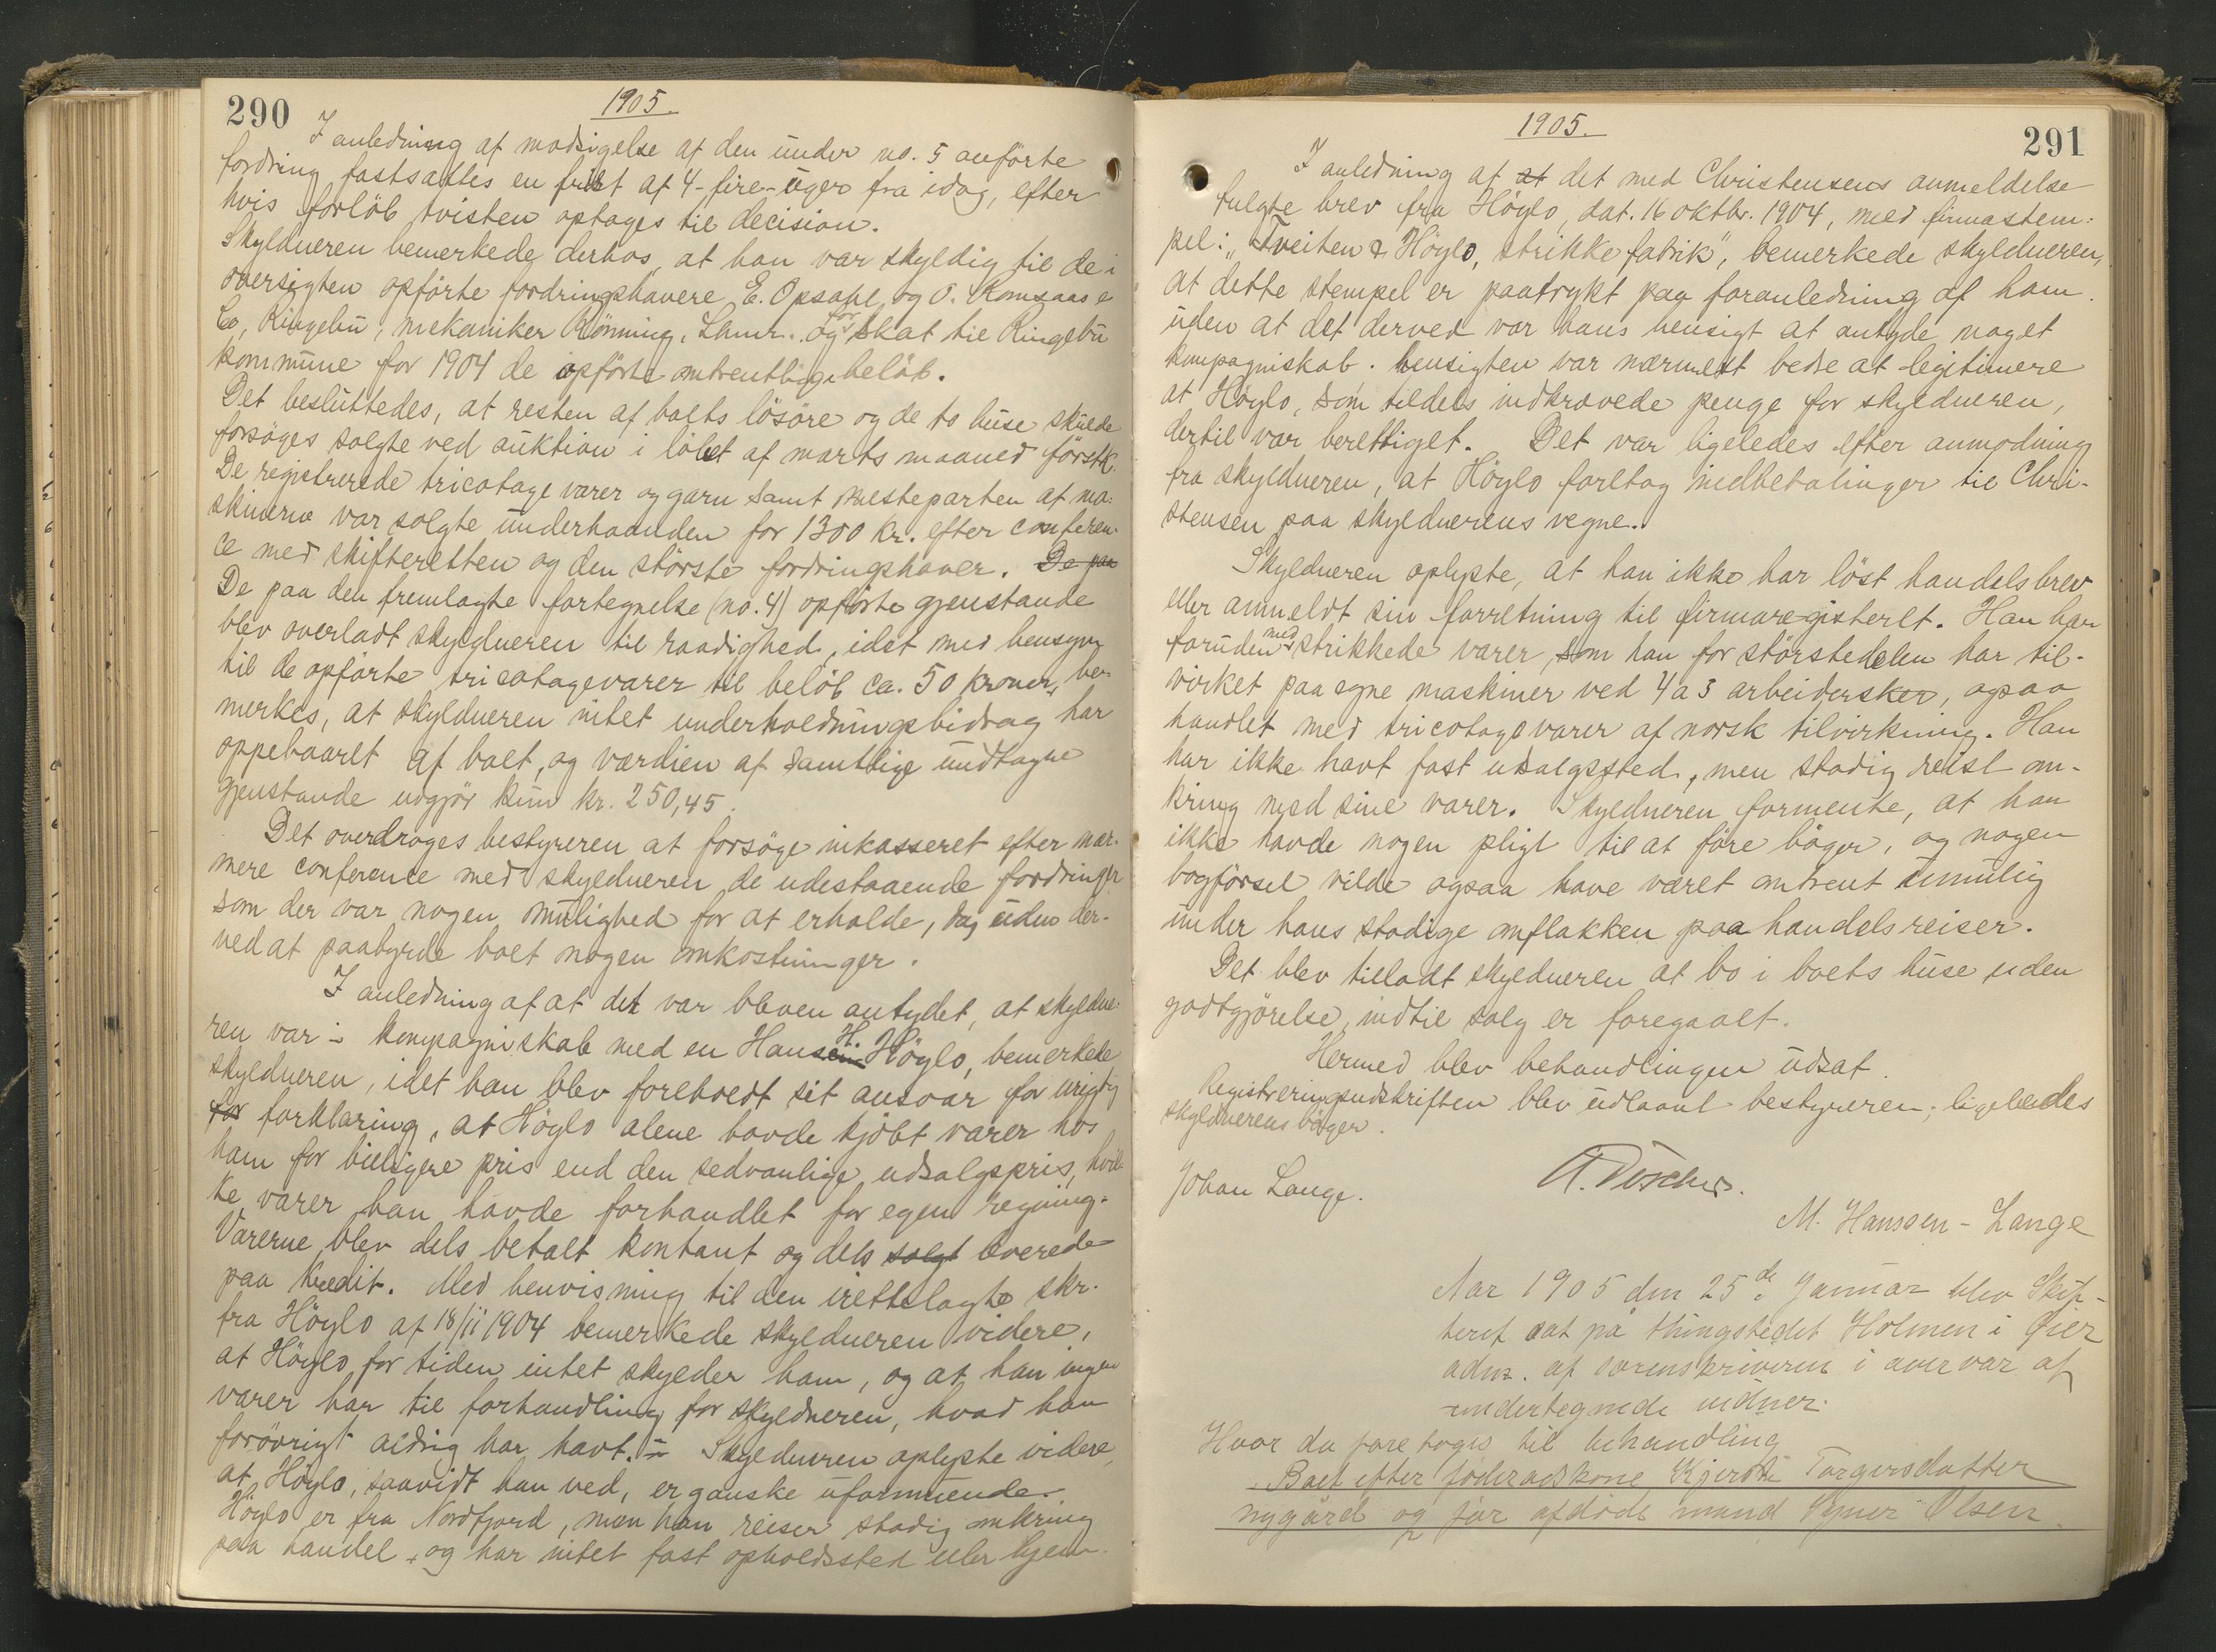 290
1905.
I anledning af modsigelse af den under no. 5 anførte
fordring fastsattes en frist af 4-fire-uger fra idag, efter
hvis forløb tvisten optages til decision.
Skyldneren bemerkede derhos, at han var skyldig til de i
oversigten opførte fordringshavere E. Opsahl og O. Romsaas &
Co, Ringebu, mekaniker Rønning, Lhmr. og for skat til Ringebu
kommune for 1904 de opførte omtrentlige beløb.
Det besluttedes, at resten af boets løsøre og de to huse skulde
forsøges solgte ved auktion i løbet af marts maaned førstk.
De registrerede tricotagevarer og garn samt mesteparten af ma-
skinerne var solgte underhaanden for 1300 kr. efter conferen-
ce med skifteretten og den største fordringshaver. De paa
De paa den fremlagte fortegnelse (no. 4) opførte gjenstande
blev overladt skyldneren til raadighed, idet med hensyn
til de opførte tricotagevarer til beløb ca. 50 kroner, be-
merkes, at skyldneren intet underholdningsbidrag har
oppebaaret af boet, og værdien af samtlige undtagne
gjenstande udgjør kun kr. 250,45.
Det overdroges bestyreren at forsøge inkasseret efter nær-
mere conference med skyldneren de udestaaende fordringer
som der var nogen mulighed for at erholde, dog uden der-
ved at paabyrde boet nogen omkostninger.
I anledning af at det var bleven antydet, at skyldne-
ren var i kompagniskab med en Hansen H. Høylo, bemerkede
skyldneren, idet han blev foreholdt sit ansvar for urigtig
for forklaring, at Høylo alene havde kjøbt varer hos
ham for billigere pris end den sedvanlige udsalgspris, hvil-
ke varer han havde forhandlet for egen regning.
Varerne blev dels betalt kontant og dels solgt leverede
paa kredit. Med henvisning til den irettelagte skr.
fra Høylo af 18/11 1904 bemerkede skyldneren videre,
at Høylo for tiden intet skylder ham, og at han ingen
varer har til forhandling for skyldneren, hvad han
forøvrigt aldrig har havt. – Skyldneren oplyste videre,
at Høylo, saavidt han ved, er ganske uformuende.
Høylo er fra Nordfjord, men han reiser stadig omkring
paa handel og har intet fast opholdssted eller hjem.
1905.
291
I anledning at at det med Christensens anmeldelse
fulgte brev fra Høylo, dat. 16 oktbr. 1904, med firmastem-
pel: „Tveiten & Høylo, strikkefabrik", bemerkede skyldneren,
at dette stempel er paatrykt paa foranledning af ham
uden at det derved var hans hensigt at antyde noget
kompagniskab. Hensigten var nærmest bedre at legitimere
at Høylo, som tildels indkrævede penge for skyldneren,
dertil var berettiget. Det var ligeledes efter anmodning
fra skyldneren, at Høylo foretog indbetalinger til Chri-
stensen paa skyldnerens vegne.
Skyldneren oplyste, at han ikke har løst handelsbrev
eller anmeldt sin forretning til firmaregisteret. Han har
foruden med strikkede varer, som han for størstedelen har til-
virket paa egne maskiner ved 4 a 3 arbeidersker, ogsaa
handlet med tricotagevarer af norsk tilvirkning. Han
har ikke havt fast udsalgssted, men stadig reist om-
kring med sine varer. Skyldneren formente, at han
ikke havde nogen pligt til at føre bøger, og nogen
bogførsel vilde ogsaa have været omtrent umulig
under hans stadige omflakken paa handelsreiser.
Det blev tilladt skyldneren at bo i boets huse uden
godtgjørelse, indtil salg er foregaaet.
Hermed blev behandlingen udsat.
Registreringsudskriften blev udlaant bestyreren, ligeledes
skyldnerens bøger.
Johan Lange.
M. Hanssen-Lange
Aar 1905 den 25de Januar blev Skif-
teret sat på thingstedet Holmen i Øier
adm. af sorenskriveren i overvær af
undertegnede vidner.
Hvor da foretoges til behandling
Boet efter føderådskone Kjersti Torgersdatter
nygård og før afdøde mand Olsen.